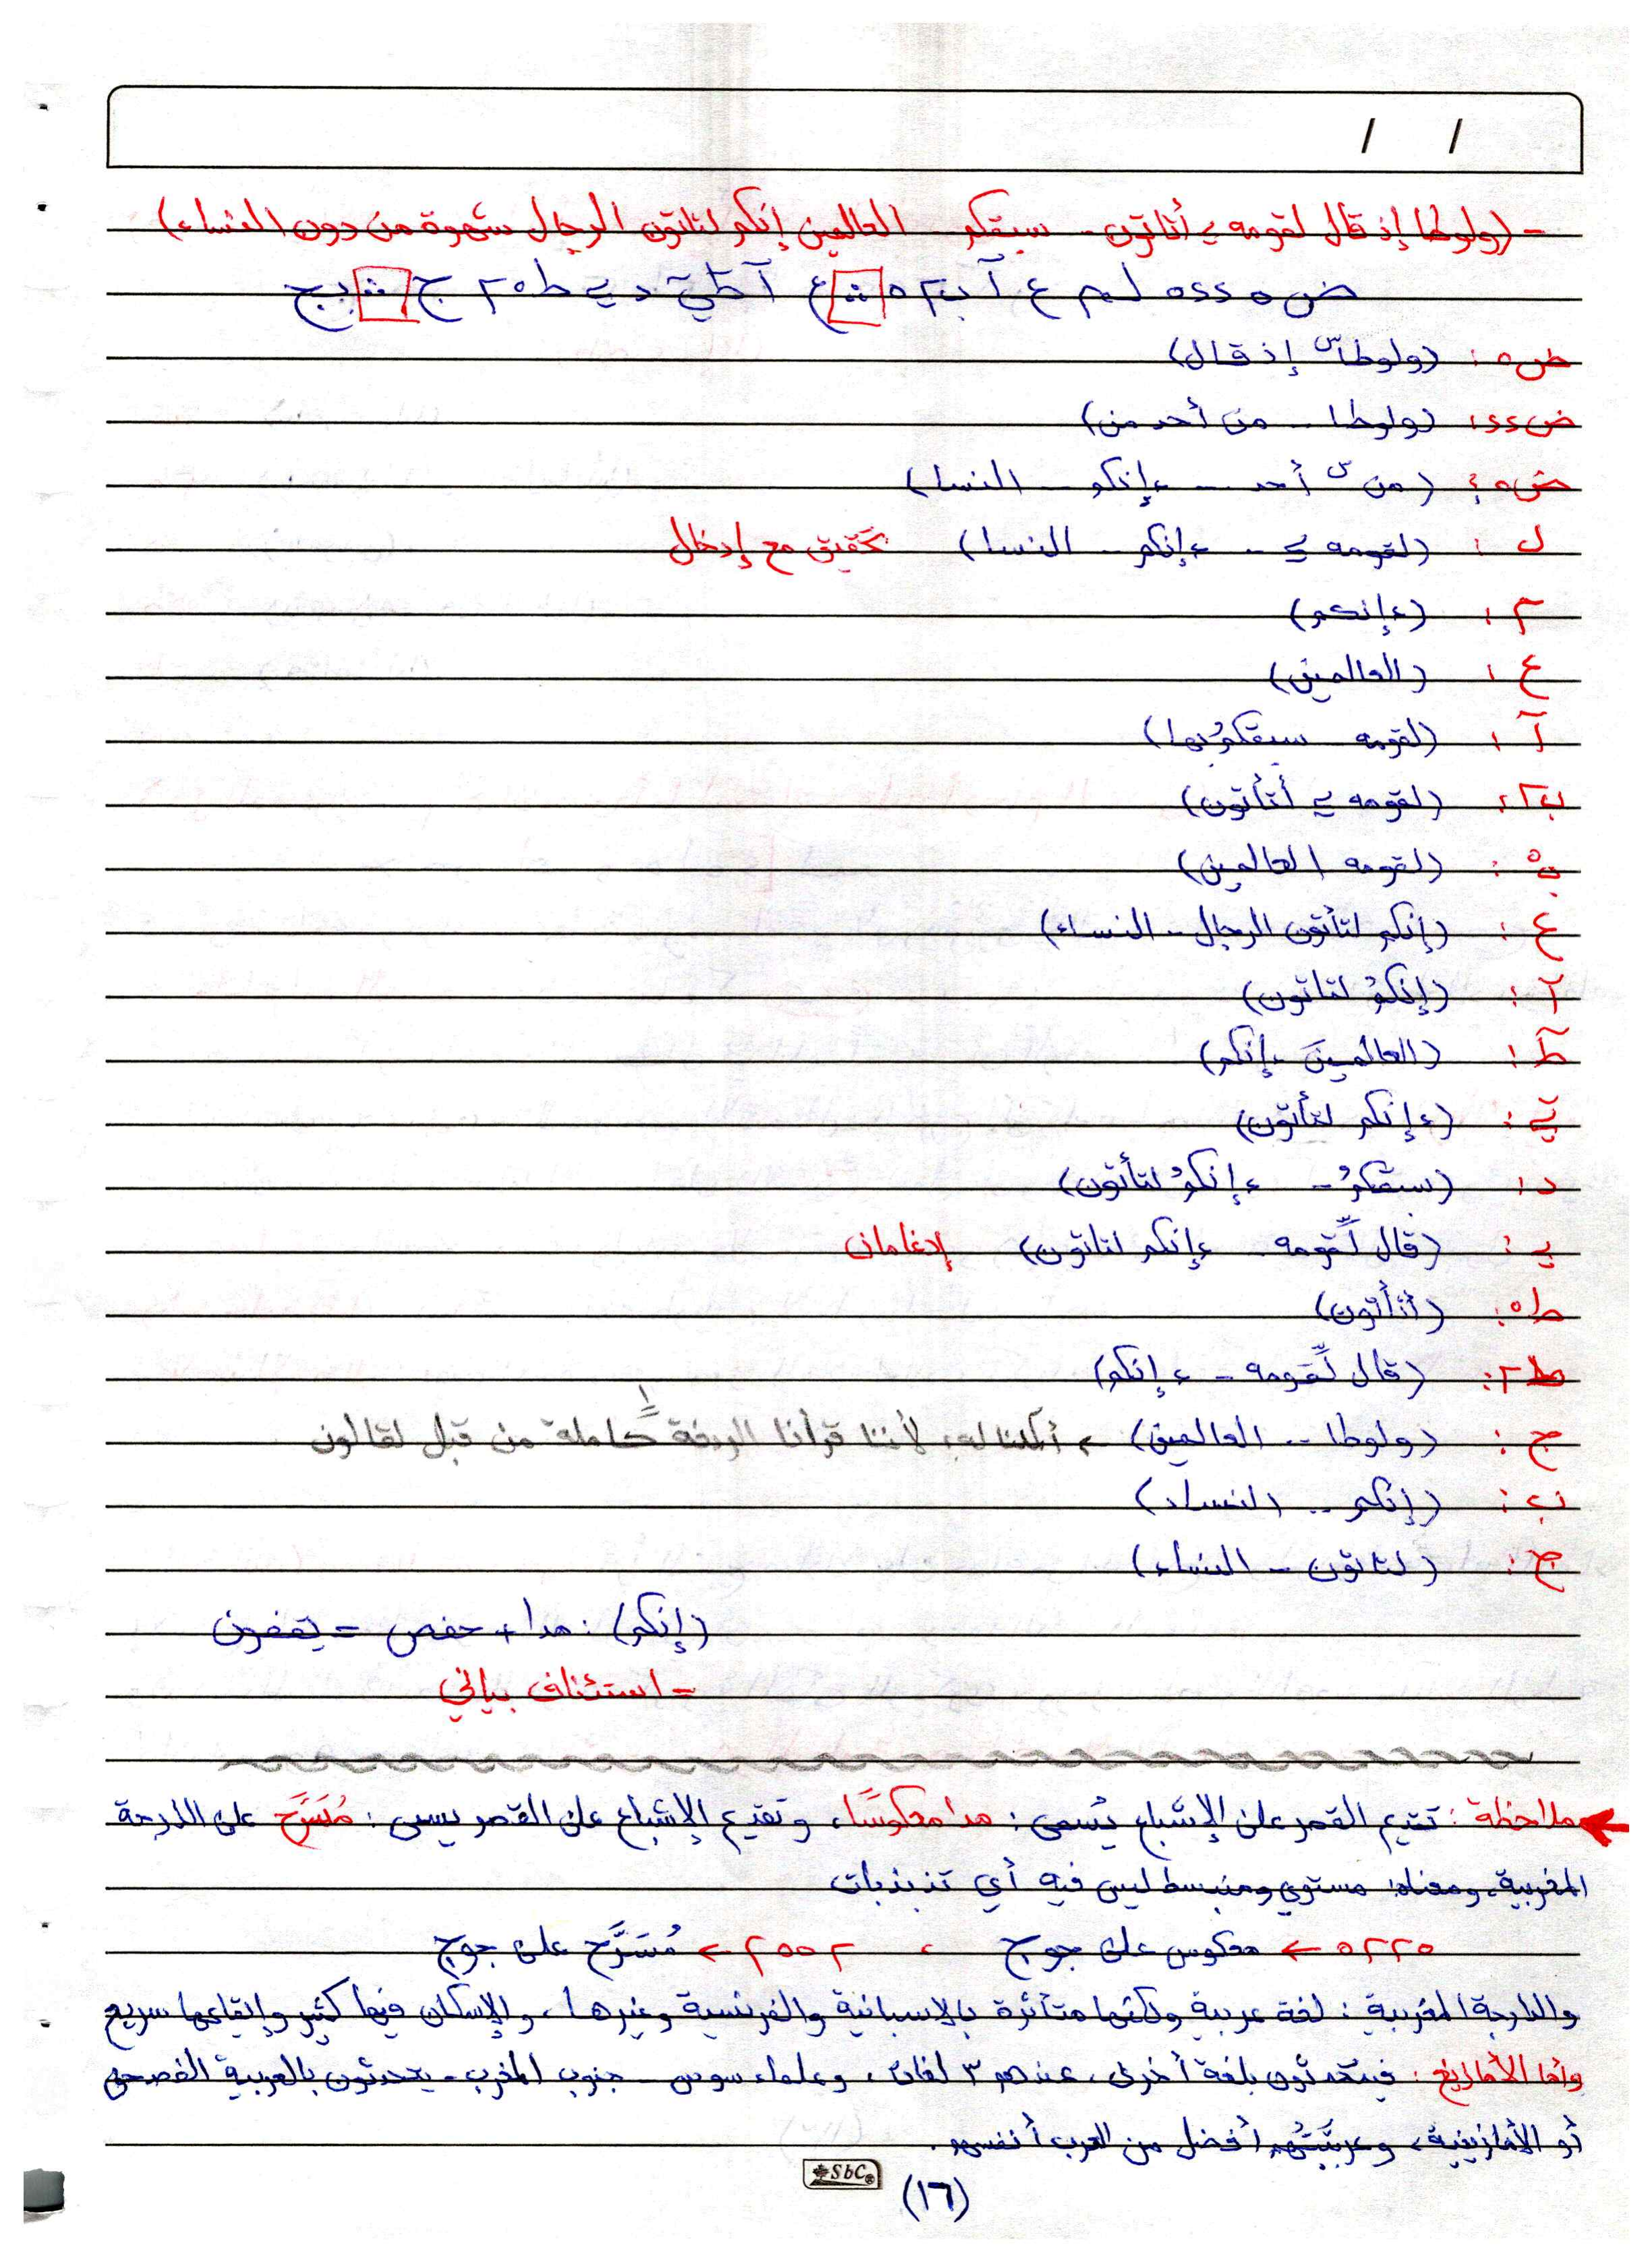 / /
- (ولوطا إذ قال لقومه ے أتأتون - سبقكم - العالمين إنكم لتأتون الرجال شهوة من دون النساء)
ض٥ ٥٤٤ ل م ع آ ب٢ ٥ ث ع آ ط ي د ي ط٥ ٢ ج ث ب ج
ض٥ : (ولوطاً س إذ قال)
ض٤٤ : (ولوطا .. من أحد من)
ض٥٤ : (من س أحد - ءإنكم - النسا)
ل : (لقومه ے - ءإنكم - النسا) تحقيق مع إدخال
م : (ءإنكم)
ع : (العالمين)
آ : (لقومه سبقكمُ بها)
ب٢ : (لقومه ے أتأتون)
ب٥ : (لقومه العالمين)
ع : (إنكم لتأتون الرجال - النساء)
آ : (إنكمُ لتاتون)
ط : (العالمينَ ءإنكم)
ي : (ءإنكم لتأتون)
د : (سبقكمُ - ءإنكمُ لتأتون)
ي : (قال لّقومه - ءإنكم لتاتون) إدغامان
ط٥ : (أتأتون)
ط٢ : (قال لّقومه - ءإنكم)
ج : (ولوطا .. العالمين) ← أكملنا له، لأننا قرأنا الوقفة كاملة من قبل لقالون
ب : (إنكم .. النساء)
ج : (لتاتون - النساء)
(إنكم) : مدا + حفص = يقفون
= استئناف بياني
ملاحظة : تقديم القصر على الإشباع يُسمى : مدا معكوسًا، وتقديم الإشباع على القصر يسمى : مُسَرَّح على الدارجة
المغربية، ومعناه: مستوي ومنبسط ليس فيه أي تذبذبات
٥٢٢٥ ← معكوس على جوج ، ٢٥٥٢ ← مُسَرَّح على جوج
والدارجة المغربية : لغة عربية ولكنها متأثرة بالاسبانية والفرنسية وغيرها، والإسكان فيها كثير وإيقاعها سريع
وأما الأمازيغ : فيتحدثون بلغة أخرى، عندهم ٣ لغات، وعلماء سوس - جنوب المغرب - يتحدثون بالعربية الفصحى
أو الأمازيغية، وعربيَّتُهم أفضل من العرب أنفسهم.
SbC
(١٦)